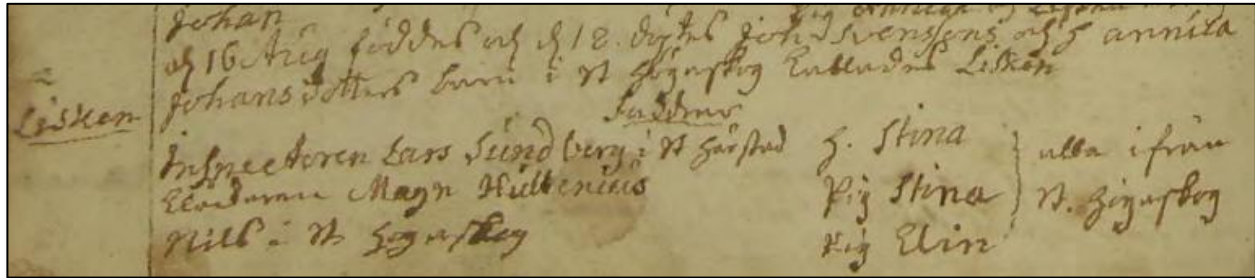 Johan
d 16 Aug föddes och d 18. döptes Joh Svenssons och h annika
Johansdotters barn i St Högnskog kallades Lisken
Lisken
Faddrar
Inspectoren Lars Sundberg i St Hårstad h. Stina
Magn Hultenius Pig Stina
Nils i St Högnskog Pig Elin
alla ifrån
St. Högnskog